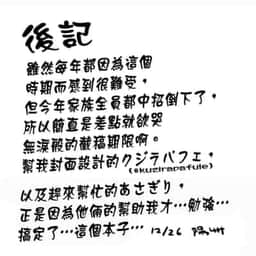 後記
雖然每年都因為這個
時期而感到很難受，
但今年家族全員都中招倒下了，
所以簡直是差點就欲哭
無淚觀的截稿期限啊。
幫我封面設計的クジラパフェ，
(@kuzirapafule)
以及趕來幫忙的あさぎり，
正是因為他倆的幫助我才…勉強…
搞定了…這個本子… 12/26